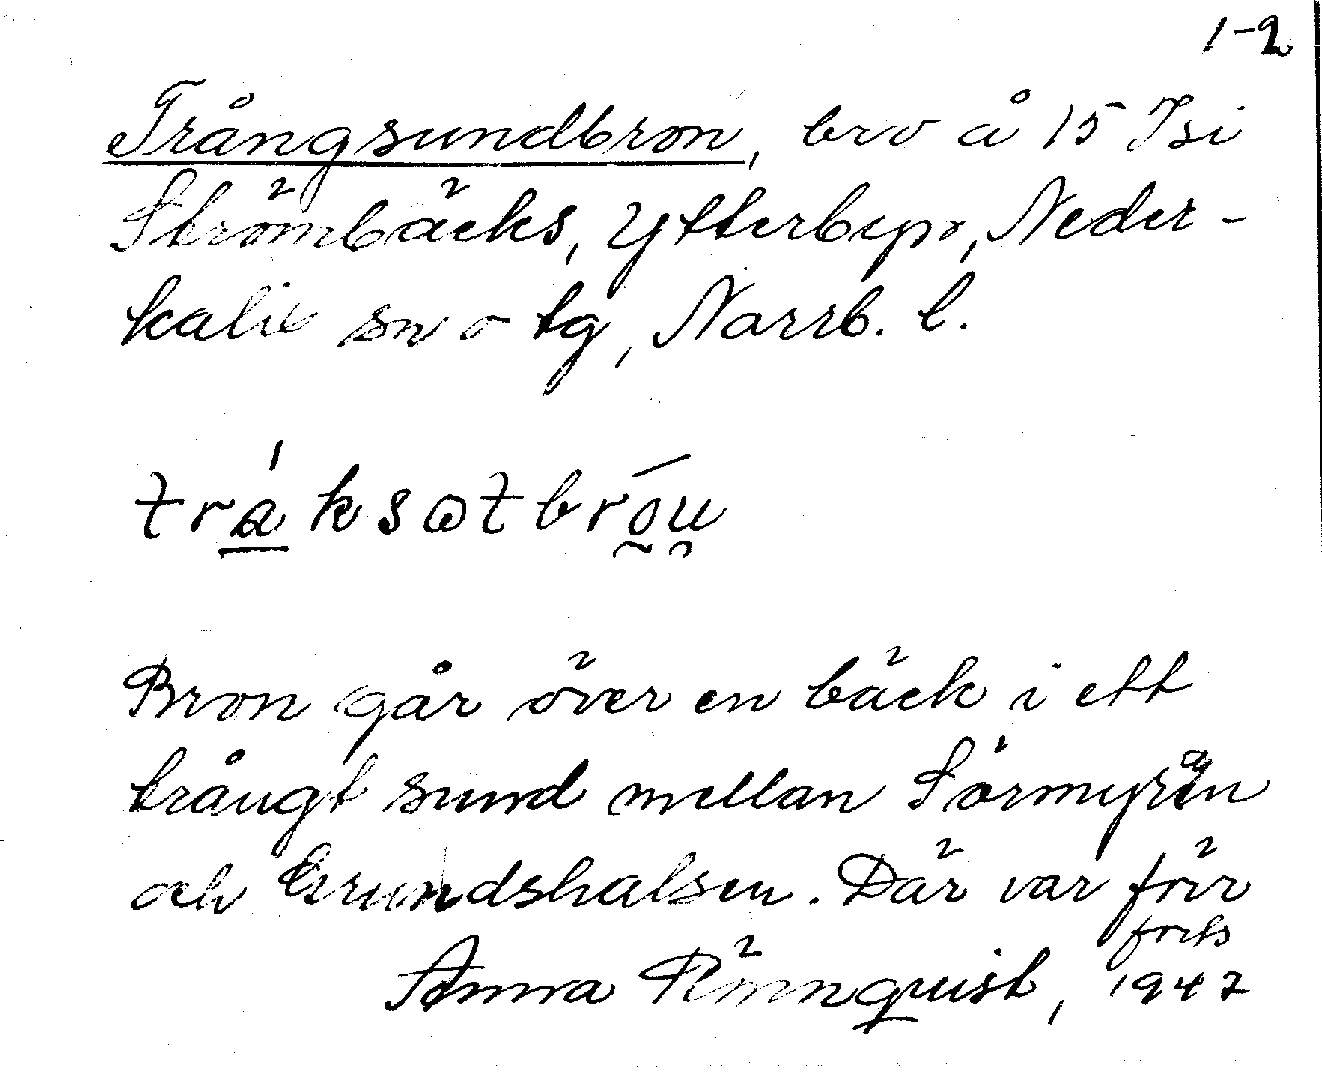 1-2
Trångsundbron, bro å 15 Isi
Strömbäcks, Ytterbyn, Neder-
kalix sn o tg, Norrb. l.
tráksωtbrōu
Bron går över en bäck i ett
trångt sund mellan Sörmyrån
och Grundshalsen. Där var förr
forts
Anna Rönnquist, 1947